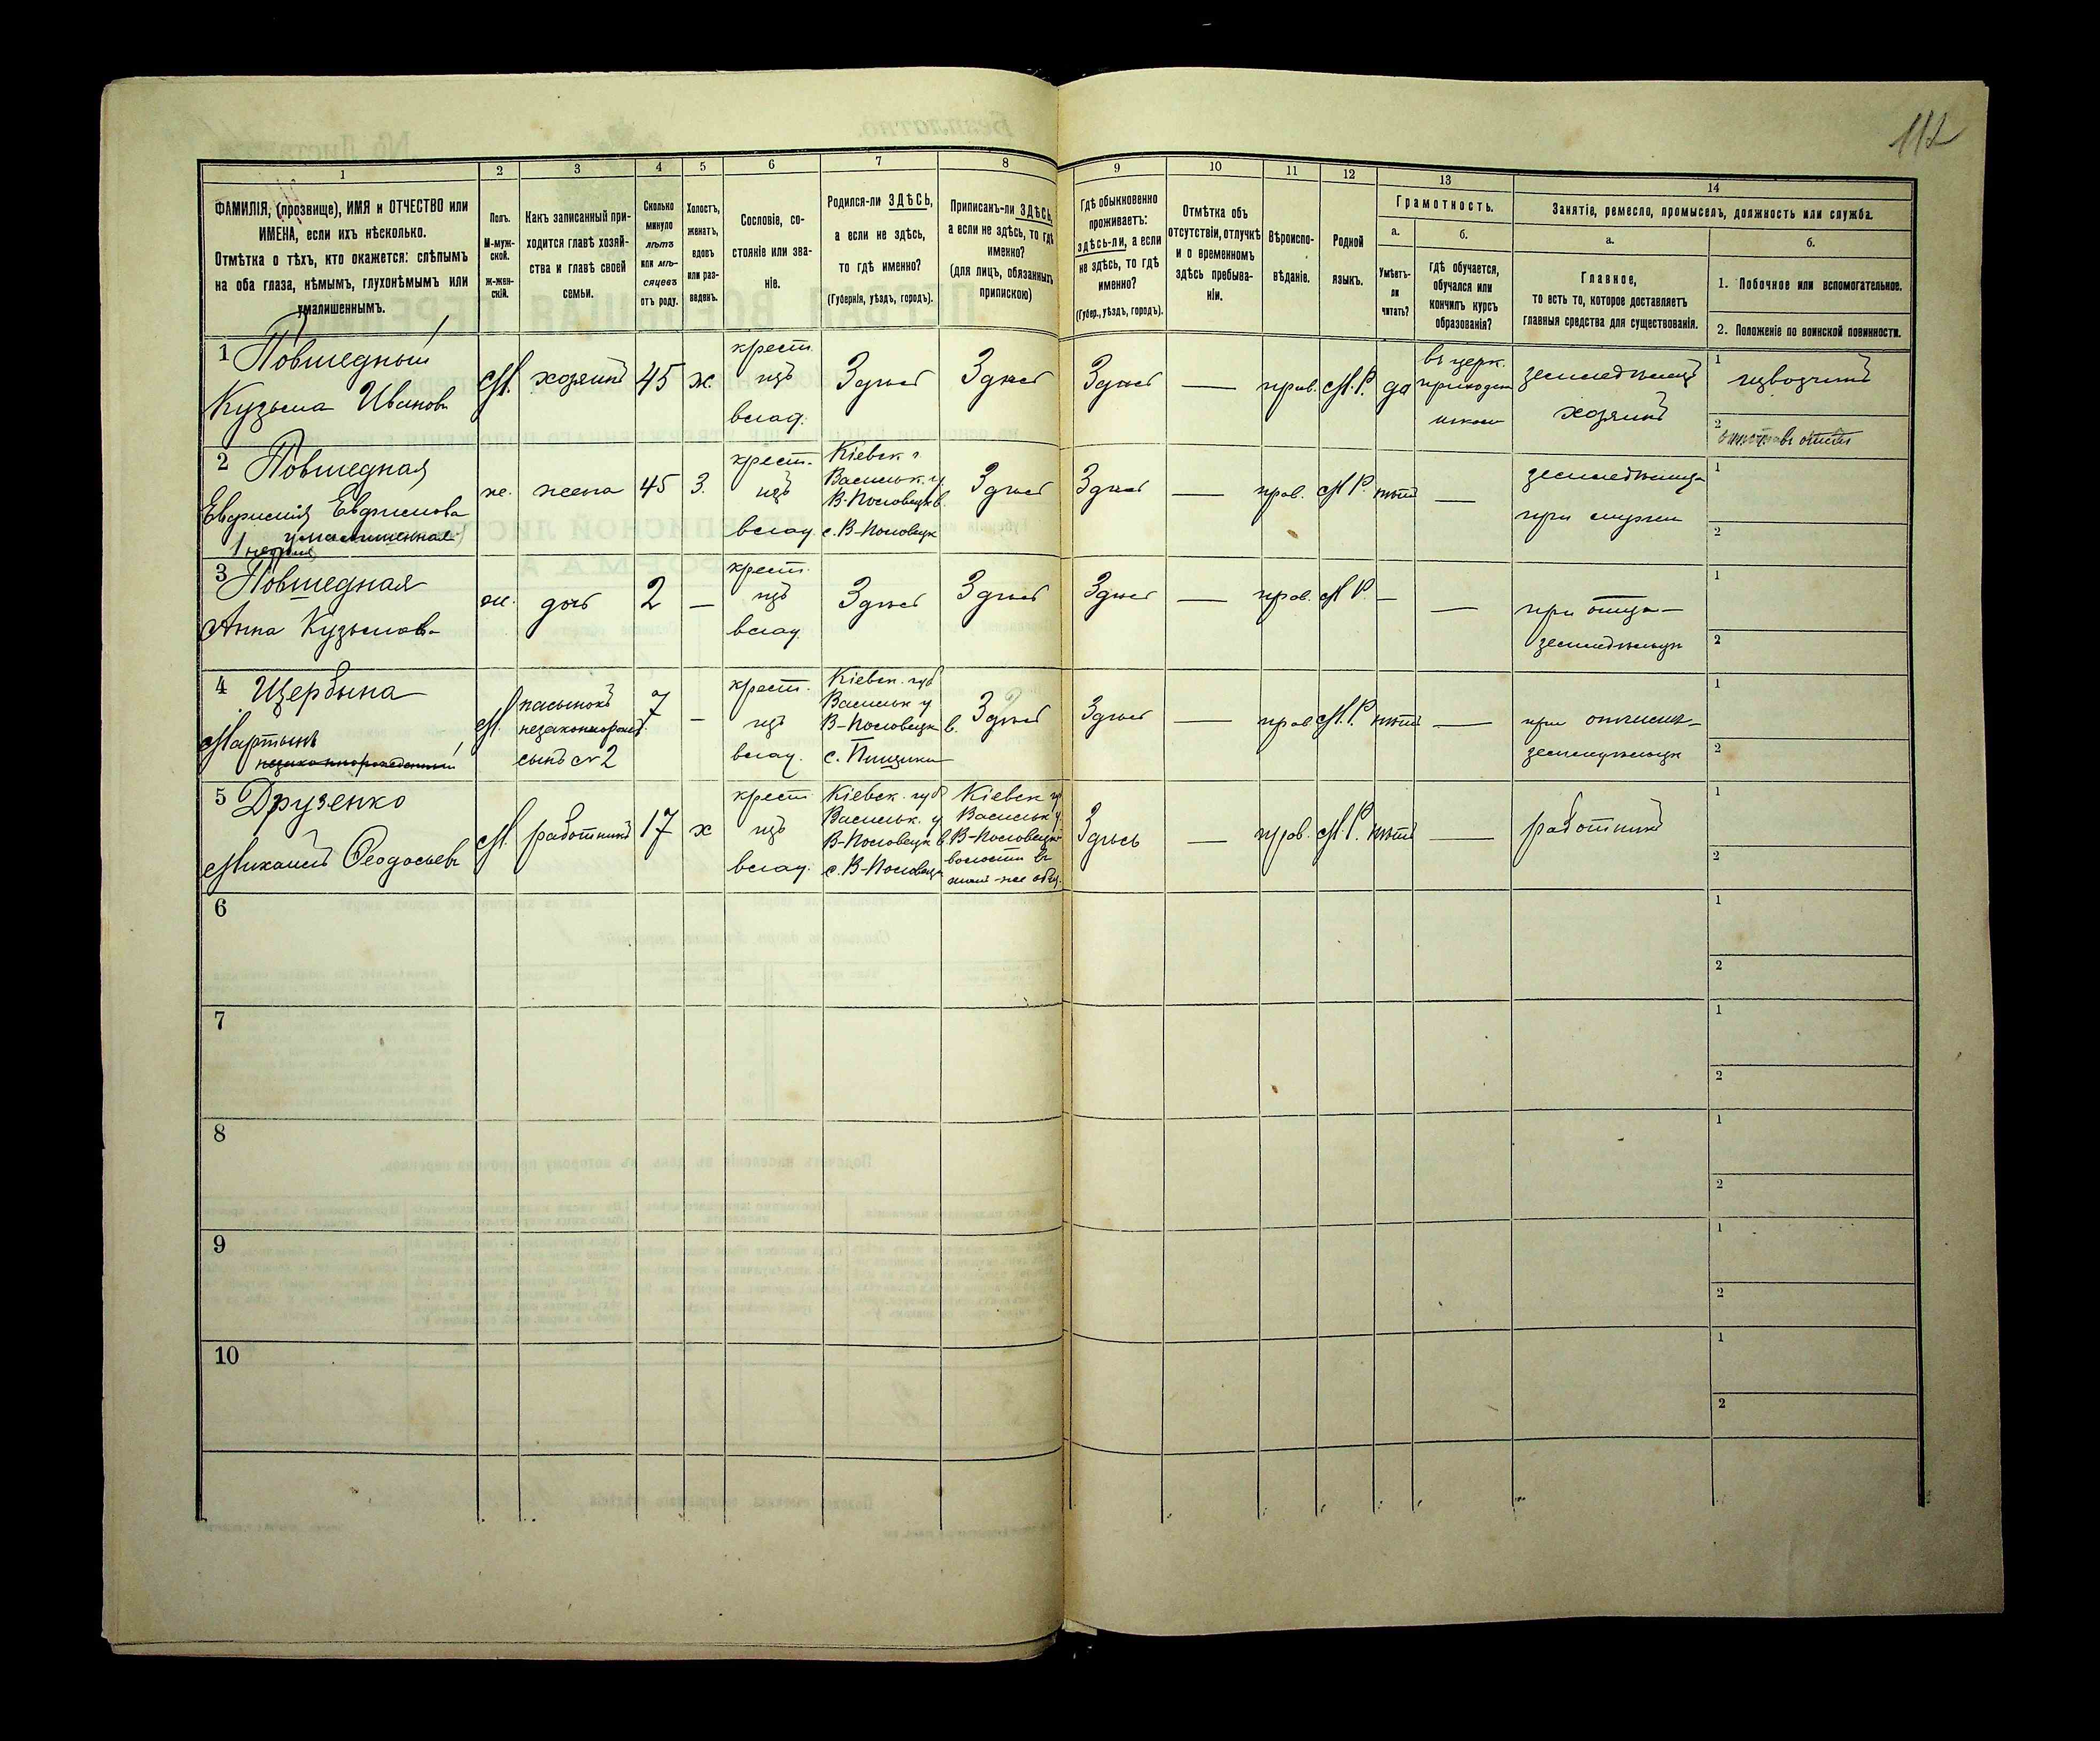 112
1 2 3 4 5 6 7 8 9 10 11 12 13 14
ФАМИЛІЯ, (прозвище), ИМЯ и ОТЧЕСТВО или
ИМЕНА, если ихъ нѣсколько.
Отмѣтка о тѣхъ, кто окажется: слѣпымъ
на оба глаза, нѣмымъ, глухонѣмымъ или
умалишеннымъ.
Полъ.
М-муж-
ской.
ж-жен-
скій.
Какъ записанный при-
ходится главѣ хозяй-
ства и главѣ своей
семьи.
Сколько
минуло
лѣтъ
или мѣ-
сяцевъ
отъ роду.
Холостъ,
женатъ,
вдовъ
или раз-
веденъ.
Сословіе, со-
стояніе или зва-
ніе.
Родился-ли ЗДѢСЬ,
а если не здѣсь,
то гдѣ именно?
(Губернія, уѣздъ, городъ).
Приписанъ-ли ЗДѢСЬ,
а если не здѣсь, то гдѣ
именно?
(для лицъ, обязанныхъ
припискою)
Гдѣ обыкновенно
проживаетъ:
здѣсь-ли, а если
не здѣсь, то гдѣ
именно?
(Губер., уѣздъ, городъ).
Отмѣтка объ
отсутствіи, отлучкѣ
и о временномъ
здѣсь пребыва-
ніи.
Вѣроиспо-
вѣданіе.
Родной
языкъ.
Грамотность.
а.
Умѣетъ-
ли
читать?
б.
гдѣ обучается,
обучался или
кончилъ курсъ
образованія?
Занятіе, ремесло, промыселъ, должность или служба.
а.
Главное,
то есть то, которое доставляетъ
главныя средства для существованія.
б.
1. Побочное или вспомогательное.
2. Положеніе по воинской повинности.
1 Повшедный
Кузьма Ивановъ
М.
хозяинъ
45
ж.
крест.
изъ
влад.
Здѣсь
Здѣсь
Здѣсь
—
прав.
М.Р.
да
въ церк.
приходск
школѣ
земледѣлецъ
хозяинъ
1 извозчикъ
2
2 Повшедная
Евфимія Евфимова
ж.
жена
45
З.
крест.
изъ
влад.
Кіевск г.
Васильк. у
В-Половецк в.
с. В-Половецк
Здѣсь
Здѣсь
—
прав.
М Р.
нѣтъ
—
земледѣлица
при мужѣ
1
2
3 Повшедная
Анна Кузьмова
ж.
дочь
2
—
крест.
изъ
влад.
Здѣсь
Здѣсь
Здѣсь
—
прав.
М Р.
—
—
при отцѣ
земледѣльцѣ
1
2
4 Щербына
Мартынъ
незаконнорожденный
М.
пасынокъ
незаконнорожд.
сынъ № 2
7
—
крест.
изъ
влад.
Кіевск. губ
Васильк у
В-Половецк в.
с. Пищики
Здѣсь
Здѣсь
—
прав
М.Р.
нѣтъ
—
при отчимѣ
земледѣльцѣ
1
2
5 Друзенко
Михаилъ Ѳеодосьевъ
М.
работникъ
17
х
крест
изъ
влад.
Кіевск. губ
Васильк. у
В-Половецк в
с. В-Половецк
Кіевск г.
Васильк у.
В-Половецкой
волости въ
той-же общ.
Здѣсь
—
прав.
М.Р.
нѣтъ
—
работникъ
1
2
6
1
2
7
1
2
8
1
2
9
1
2
10
1
2